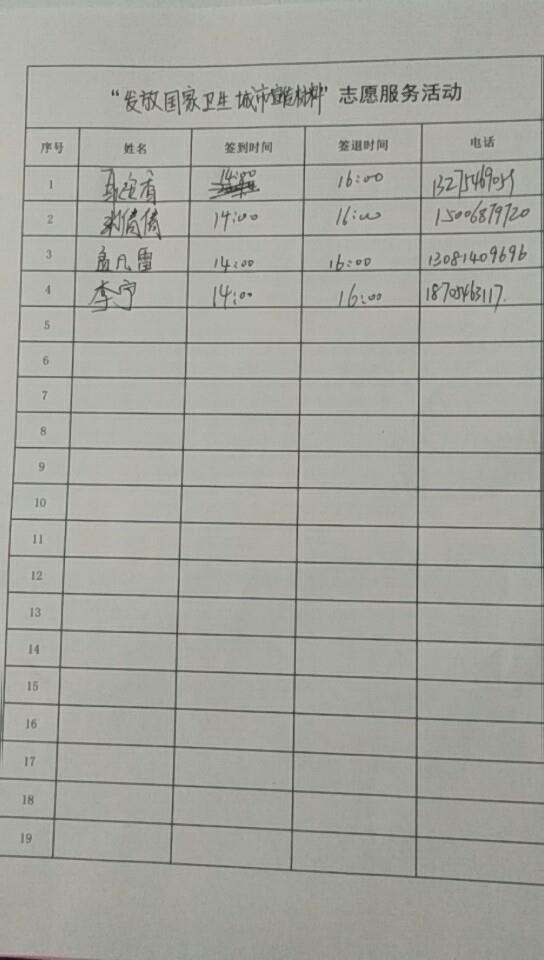 “发放国家卫生城市宣传材料”志愿服务活动
序号 姓名 签到时间 签退时间 电话
1 14:00 16:00 13275469059
2 刘倩倩 14:00 16:00 15006879720
3 孟凡雷 14:00 16:00 13081409696
4 李宁 14:00 16:00 18705463117.
5
6
7
8
9
10
11
12
13
14
15
16
17
18
19